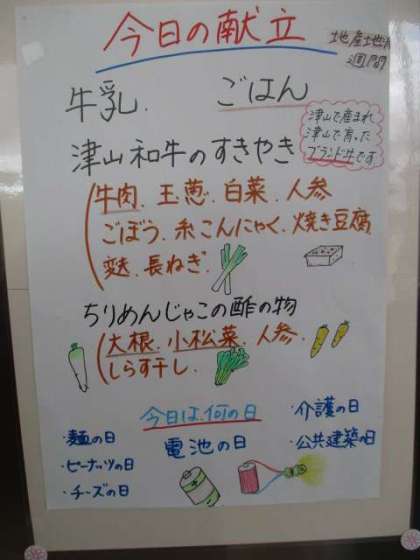 今日の献立
地産地消
週間
牛乳. ごはん
津山で産まれ
津山で育った
ブランド牛です
津山和牛のすきやき
牛肉. 玉葱. 白菜. 人参
ごぼう. 糸こんにゃく. 焼き豆腐
麩. 長ねぎ
ちりめんじゃこの酢の物
大根. 小松菜. 人参.
しらす干し.
今日は.何の日
・介護の日
・麺の日
電池の日
・公共建築の日
・ピーナッツの日
・チーズの日